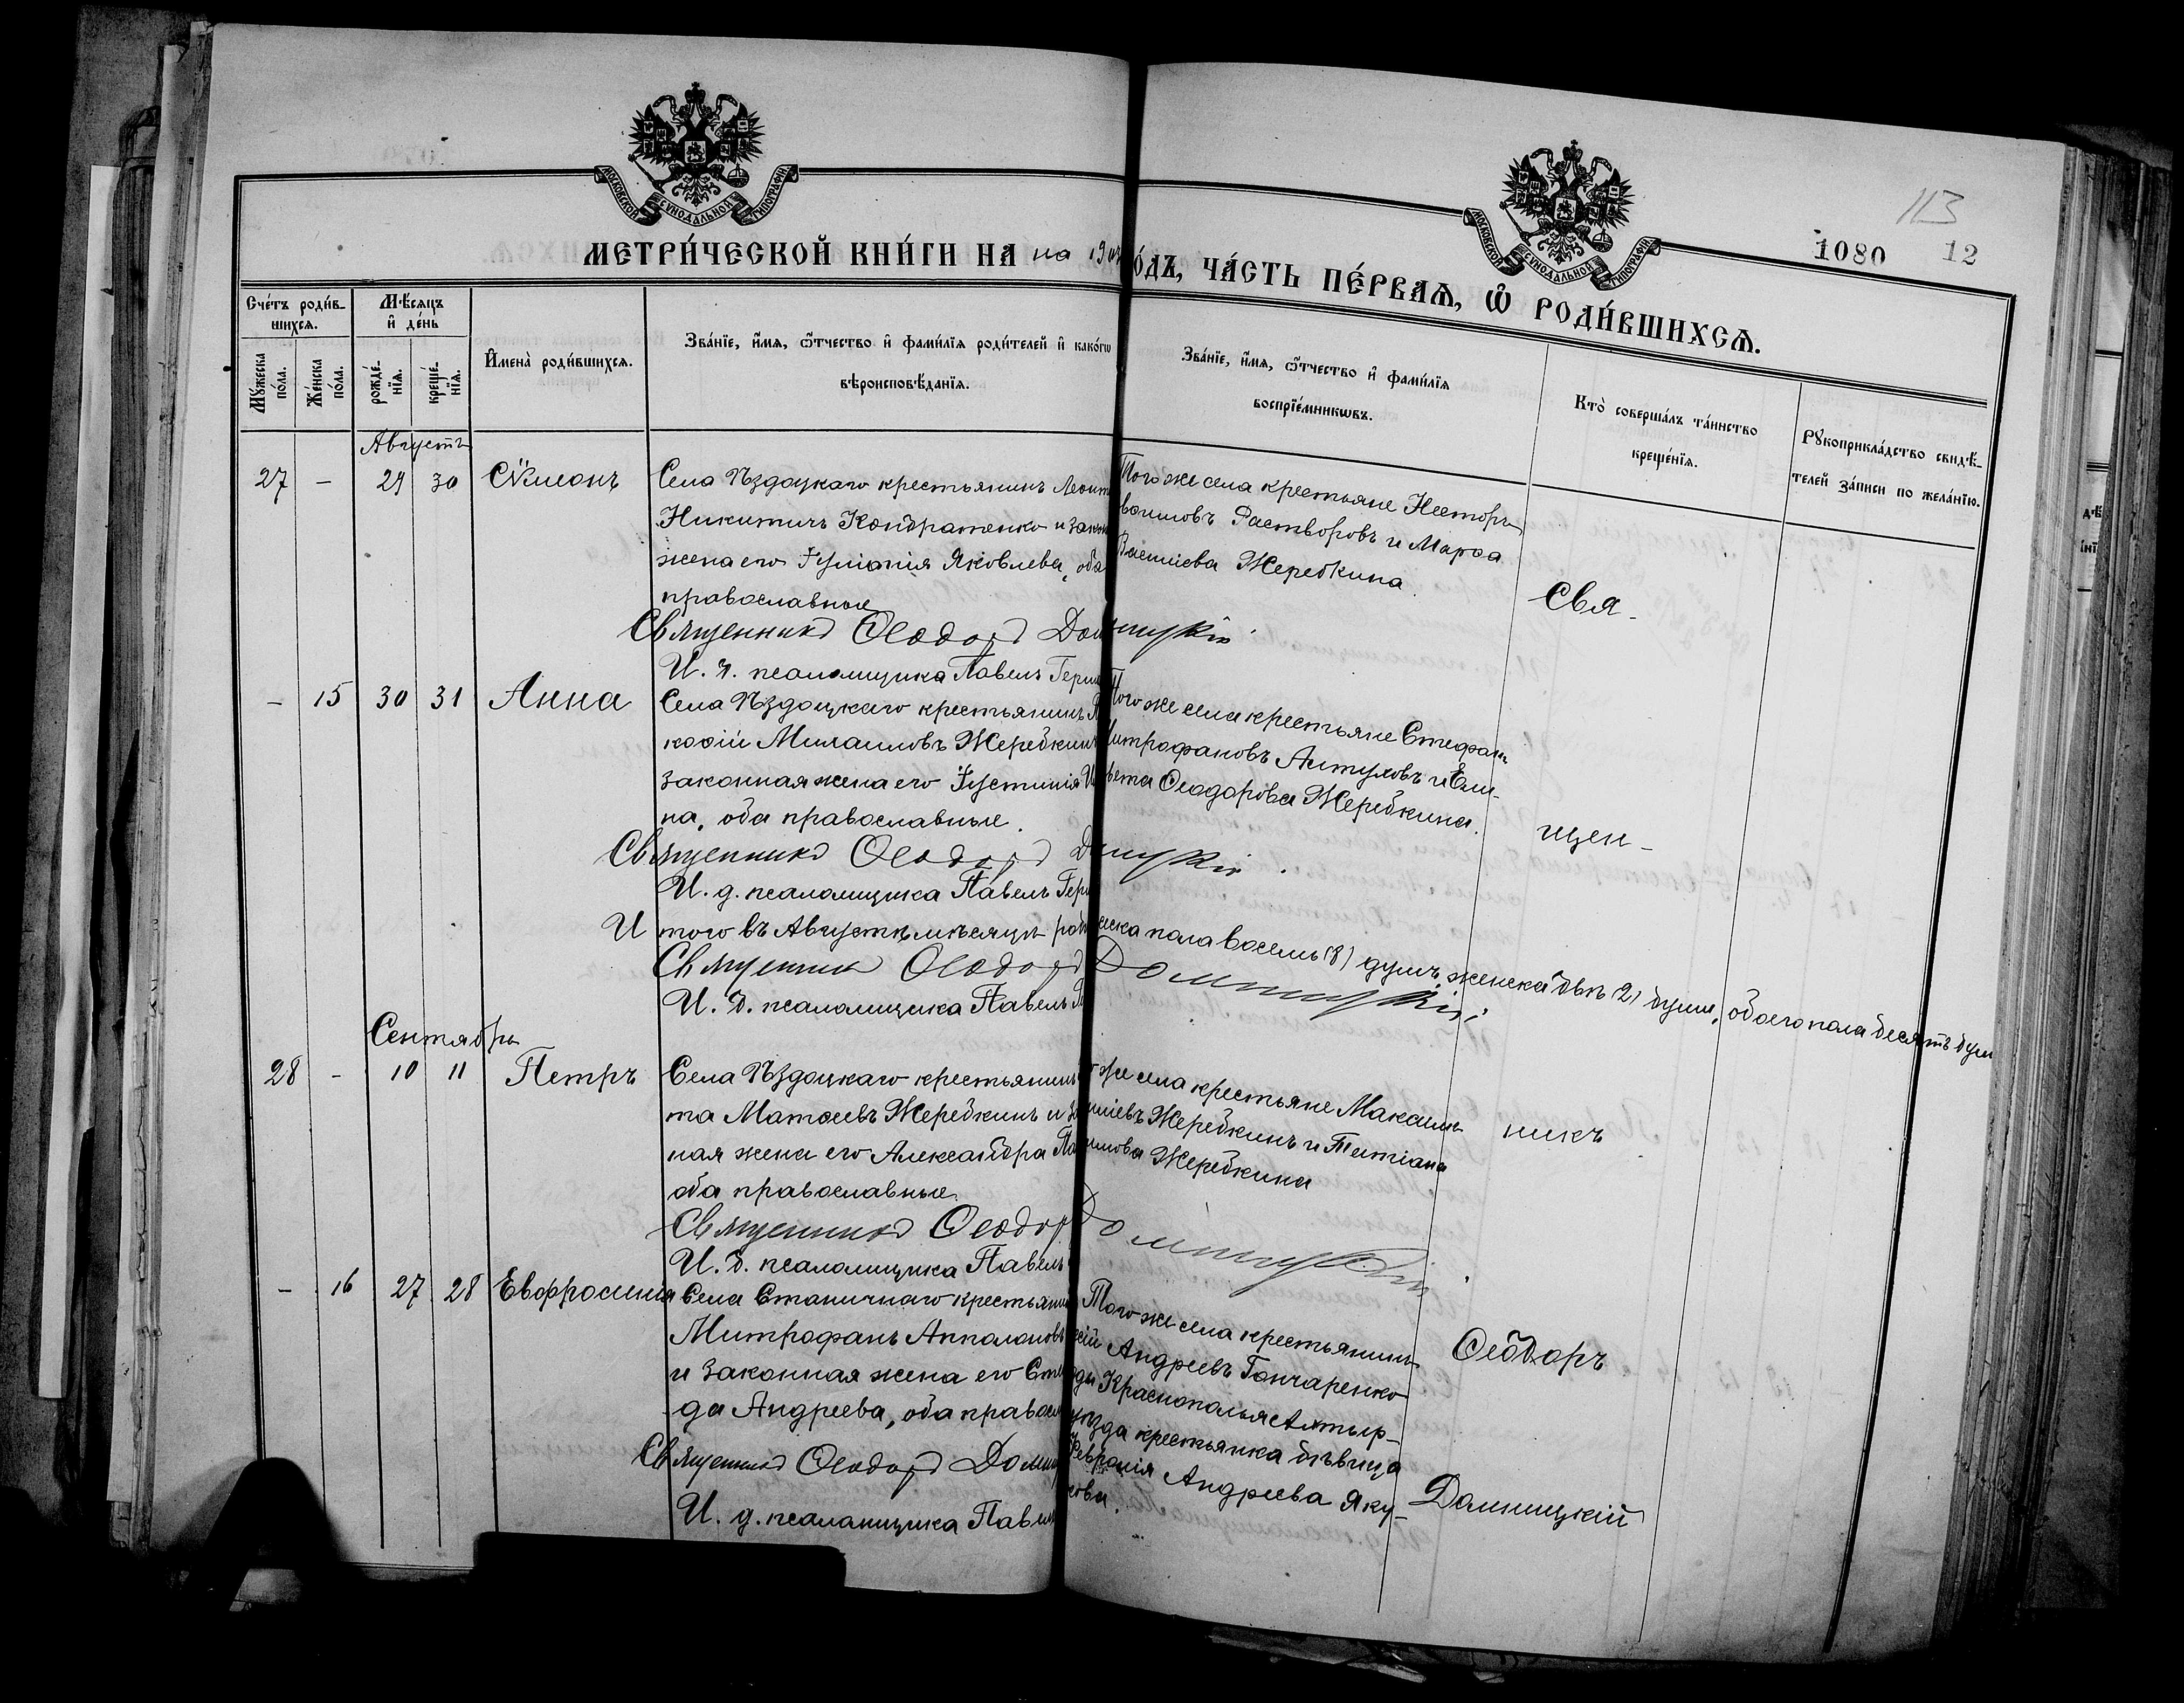 МОСКОВСКОЙ СѴНОДАЛЬНОЙ ТИПОГРАФІИ
МОСКОВСКОЙ СѴНОДАЛЬНОЙ ТИПОГРАФІИ
113
1080 12
МЕТРИ́ЧЕСКОЙ КНИ́ГИ НА на 190
О́ДЪ, ЧА́СТЬ ПЕ́РВАѦ, Ѡ РОДИ́ВШИХСѦ.
Сче́тъ роди́в-
шихсѧ.
Мѣ́сяцъ
и҆ де́нь
Мꙋ́жеска
по́ла.
Же́нска
по́ла.
рожде́-
нїѧ.
креще́-
нїѧ.
И҆мена̀ роди́вшихсѧ.
Зва́нїе, и҆́мѧ, ѻ҆́тчество и҆ фами́лїѧ роди́телей и҆ како́гѡ
вѣроисповѣ́данїѧ.
Зва́нїе, и҆́мѧ, ѻ҆́тчество и҆ фами́лїѧ
воспрїе́мникѡвъ.
Кто̀ соверша́лъ та́инство
креще́нїѧ.
Рꙋкоприкла́дство свидѣ́-
телей за́писи по жела́нїю.
Августъ
27 - 29 30 Сѵмеонъ
Села Пздоцкаго крестьянинъ Леонт
Никитичъ Кондратенко и закон
жена его Іуліанія Яковлева, оба
православные
Того же села крестьяне Несторъ
Растворовъ и Марѳа
Жеребкина
Свя-
Священникъ Ѳеодоръ Домницкій
И. д. псаломщика Павелъ
- 15 30 31 Анна
Села Пздоцкаго крестьянинъ
кофій Михаиловъ Жеребкинъ
законная жена его Іустинія
на, оба православные.
Того же села крестьяне Стефанъ
Митрофановъ Алтуховъ и Ели-
вета Ѳеодорова Жеребкина.
щен-
Священникъ Ѳеодоръ Домницкій
И. д. псаломщика Павелъ
Итого въ Августѣ мѣсяцѣ жеска пола восемь (8) душъ, женска двѣ (2) души, обоего пола десять душ
Священникъ Ѳеодоръ Домницкій
И. д. псаломщика Павелъ
Сентябрь
28 - 10 11 Петръ
Села Пздоцкаго крестьянинъ
та Матѳеевъ Жеребкинъ и за
ная жена его Александра
оба православные.
же села крестьяне Максимъ
Жеребкинъ и Татіана
Жеребкина
никъ
Священникъ Ѳеодоръ Домницкій
И. д. псаломщика Павелъ
- 16 27 28 Евфросинія
Села Станичнаго крестьянинъ
Митрофанъ Апполоновъ
и законная жена его Сте
да Андреева, оба правосл
Того же села крестьянинъ
Андреевъ Гончаренко
Краснополья Ахтыр-
уѣзда крестьянка дѣвица
Февронія Андреева Яку-
Ѳеодоръ
Священникъ Ѳеодоръ Домни
И. д. псаломщика Павелъ
Домницкій